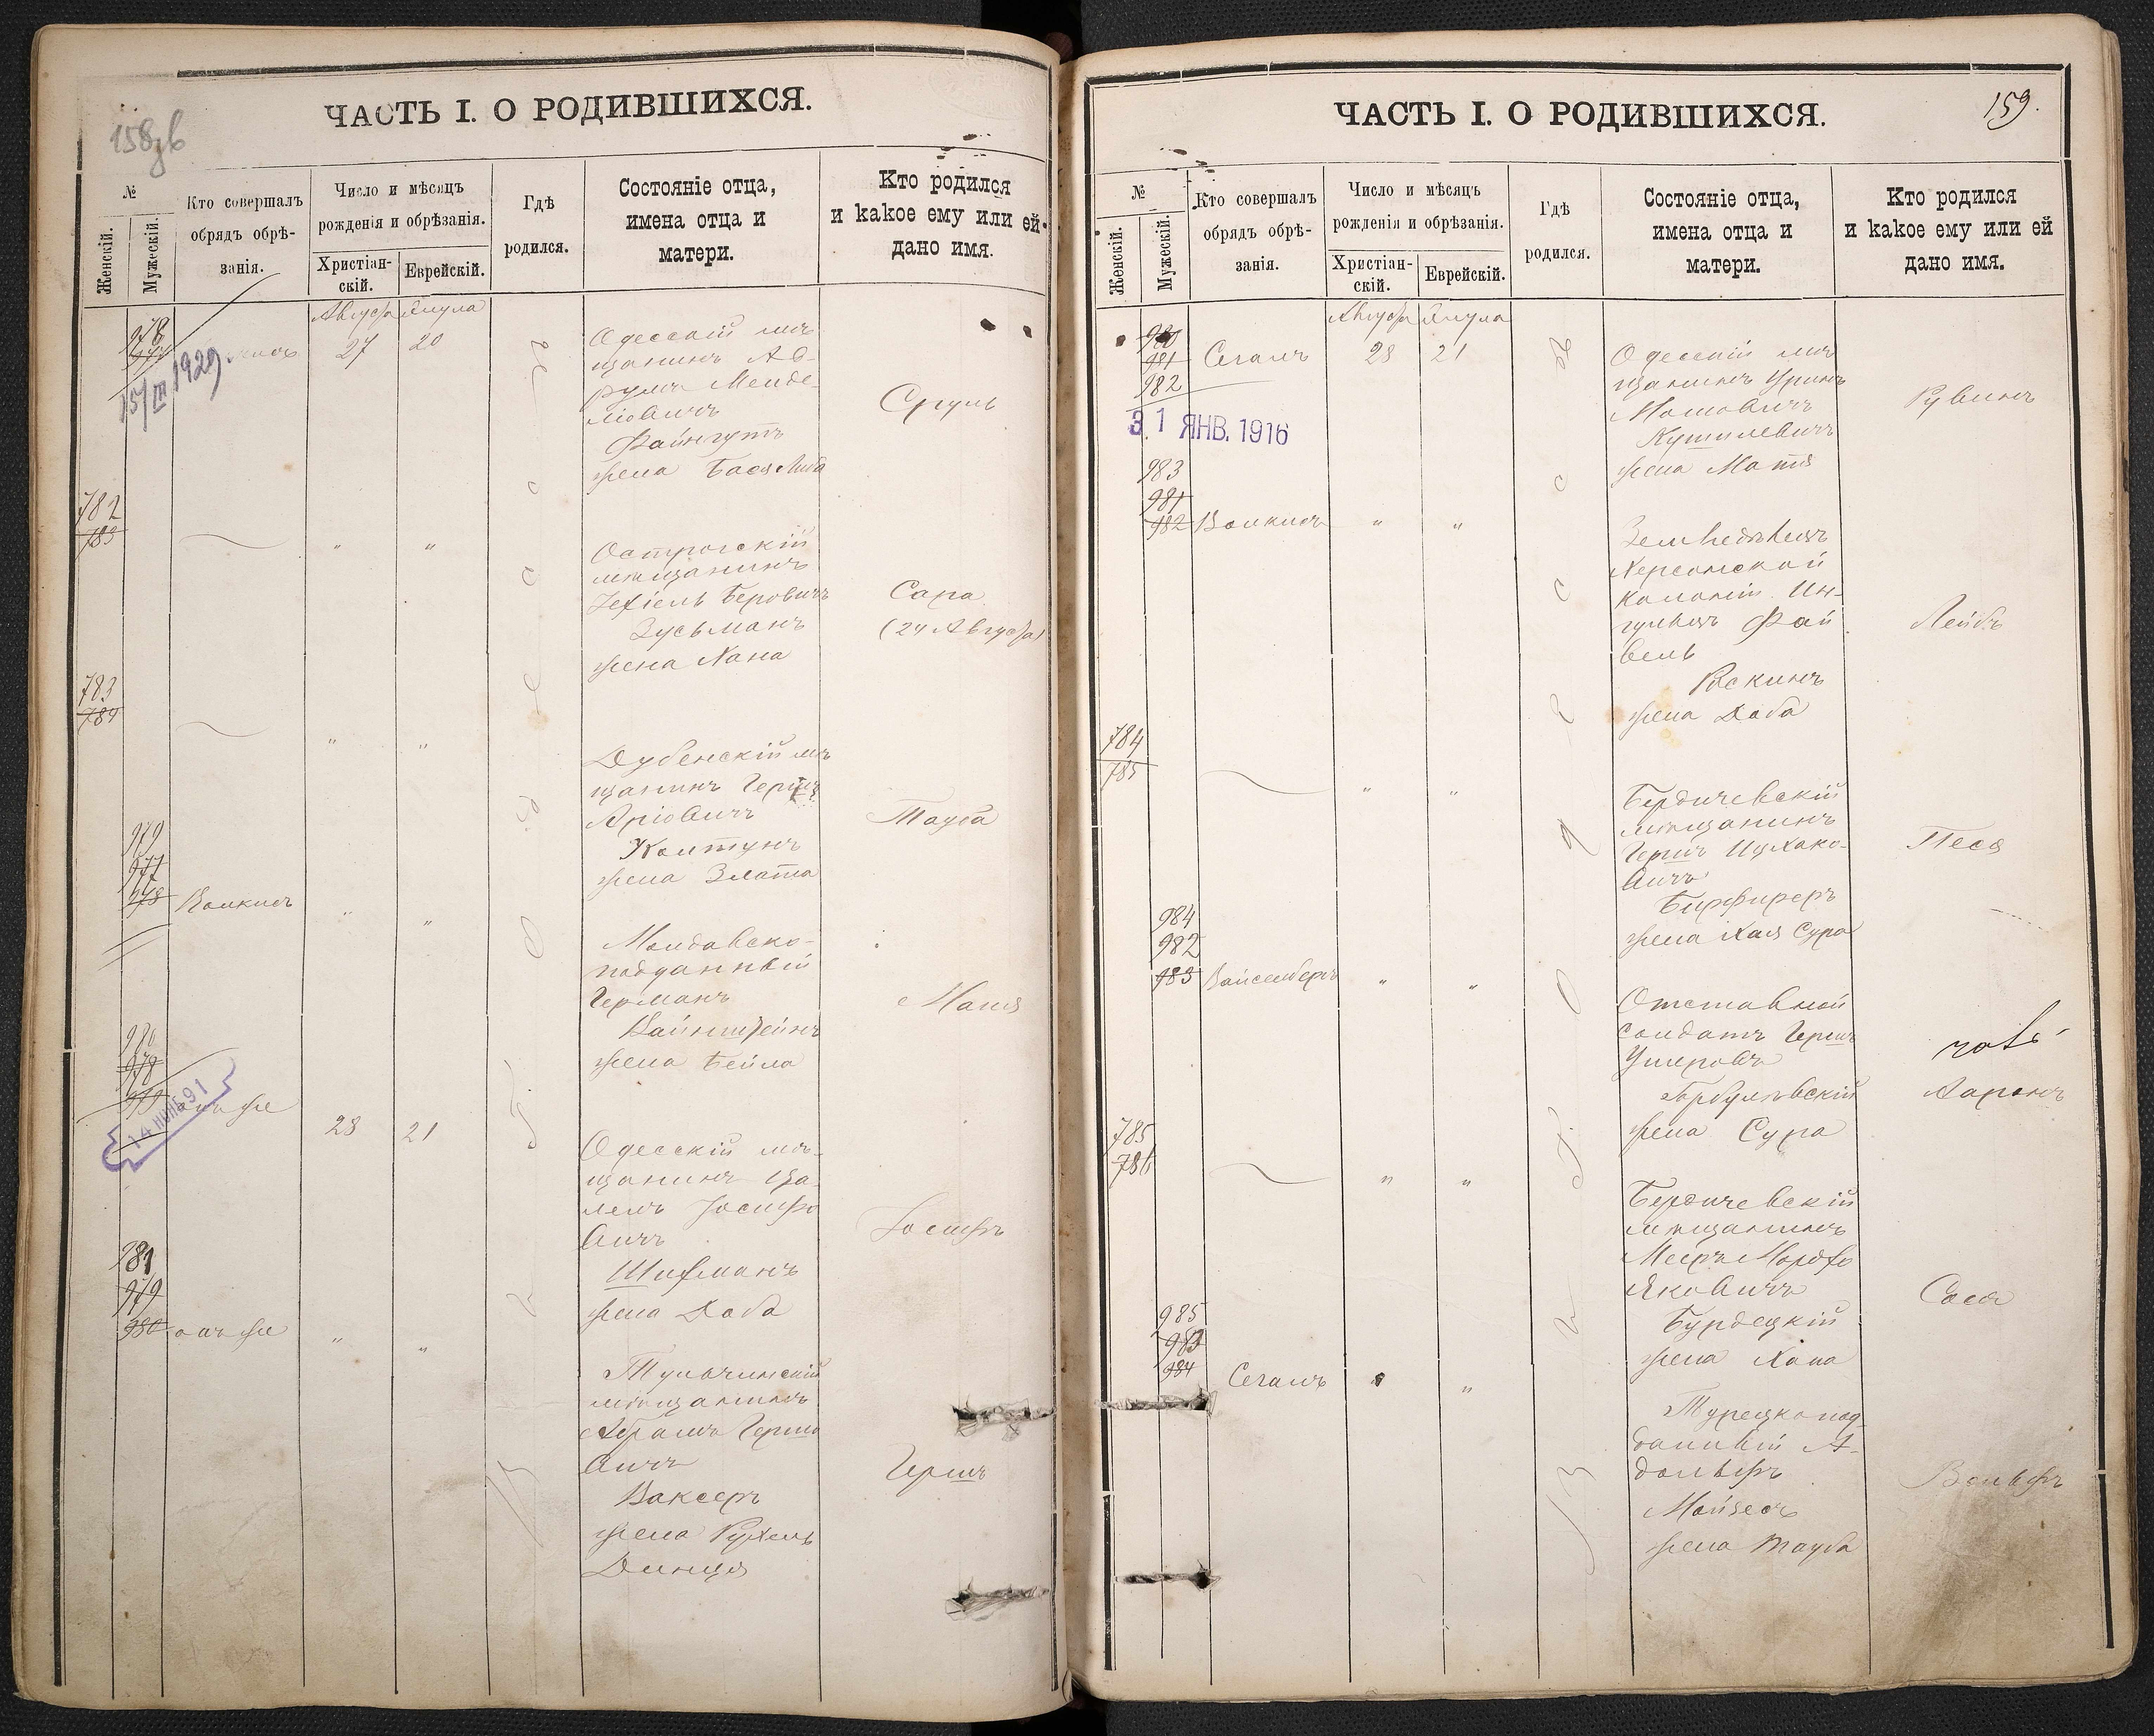 ЧАСТЬ I. О РОДИВШИХСЯ.
№
Женскій.
Мужескій.
Кто совершалъ
обрядъ обрѣ-
занія.
Число и мѣсяцъ
рожденія и обрѣзанія.
Христіан-
скій.
Еврейскій.
Гдѣ
родился.
Состояніе отца,
имена отца и
матери.
Кто родился
и какое ему или ей
дано имя.
Августа
978
27
20
15/III 1929.
Одесскій мѣ-
щанинъ Ав-
румъ Менде-
ліовичъ
Файнгутъ
жена Бася Либа
Сруль
782
783
"
"
Острогскій
мѣщанинъ
Іехіель Беровичъ
Зусьманъ
жена Хана
Сара
(24 Августа)
783
784
"
"
Дубенскій мѣ-
щанинъ Гершъ
Аріовичъ
Колтунъ
жена Злата
Тауба
979
977
978
Волкисъ
"
"
Молдавско-
подданный
Германъ
Вайнштейнъ
жена Бейла
980
978
979
14 ИЮНЬ 91
онъ же
28
21
Одесскій мѣ-
щанинъ
Іосифо
вичъ
Шифманъ
жена Доба
Іосифъ
981
979
980
онъ же
"
"
Тульчинскій
мѣщанинъ
Абрамъ Гершо
вичъ
Ваксеръ
жена Рухель
Динця
Гершъ
Одесса
ЧАСТЬ I. О РОДИВШИХСЯ.
159.
№
Женскій.
Мужескій.
Кто совершалъ
обрядъ обрѣ-
занія.
Число и мѣсяцъ
рожденія и обрѣзанія.
Христіан-
скій.
Еврейскій.
Гдѣ
родился.
Состояніе отца,
имена отца и
матери.
Кто родился
и какое ему или ей
дано имя.
Августа
980
981
982
Сегалъ
28
21
31 ЯНВ. 1916
Одесскій мѣ
щанинъ
Мошовичъ
Кушилевичъ
жена Матя
Рувинъ
983
981
982
Волкисъ
"
"
Земледѣлецъ
Херсонской
колоніи Ин-
гулецъ Фай
вель
Рискинъ
жена Доба
Лейбъ
784
785
"
"
Бердичевскій
мѣщанинъ
Гершъ Ицхако-
вичъ
жена Хая Сура
Песя
984
982
983
Вайсенберъ
"
"
Отставной
солдатъ Гершъ
Умеровъ
жена Сура
Ааронъ
785
786
"
"
Бердичевскій
мѣщанинъ
Мееръ Мордхо
Яковичъ
Бурдецкій
жена Хана
Сося
985
983
984
Сегалъ
"
"
Турецкопод-
данный А-
дольфъ
Мойзесъ
жена Тауба
Вольфъ